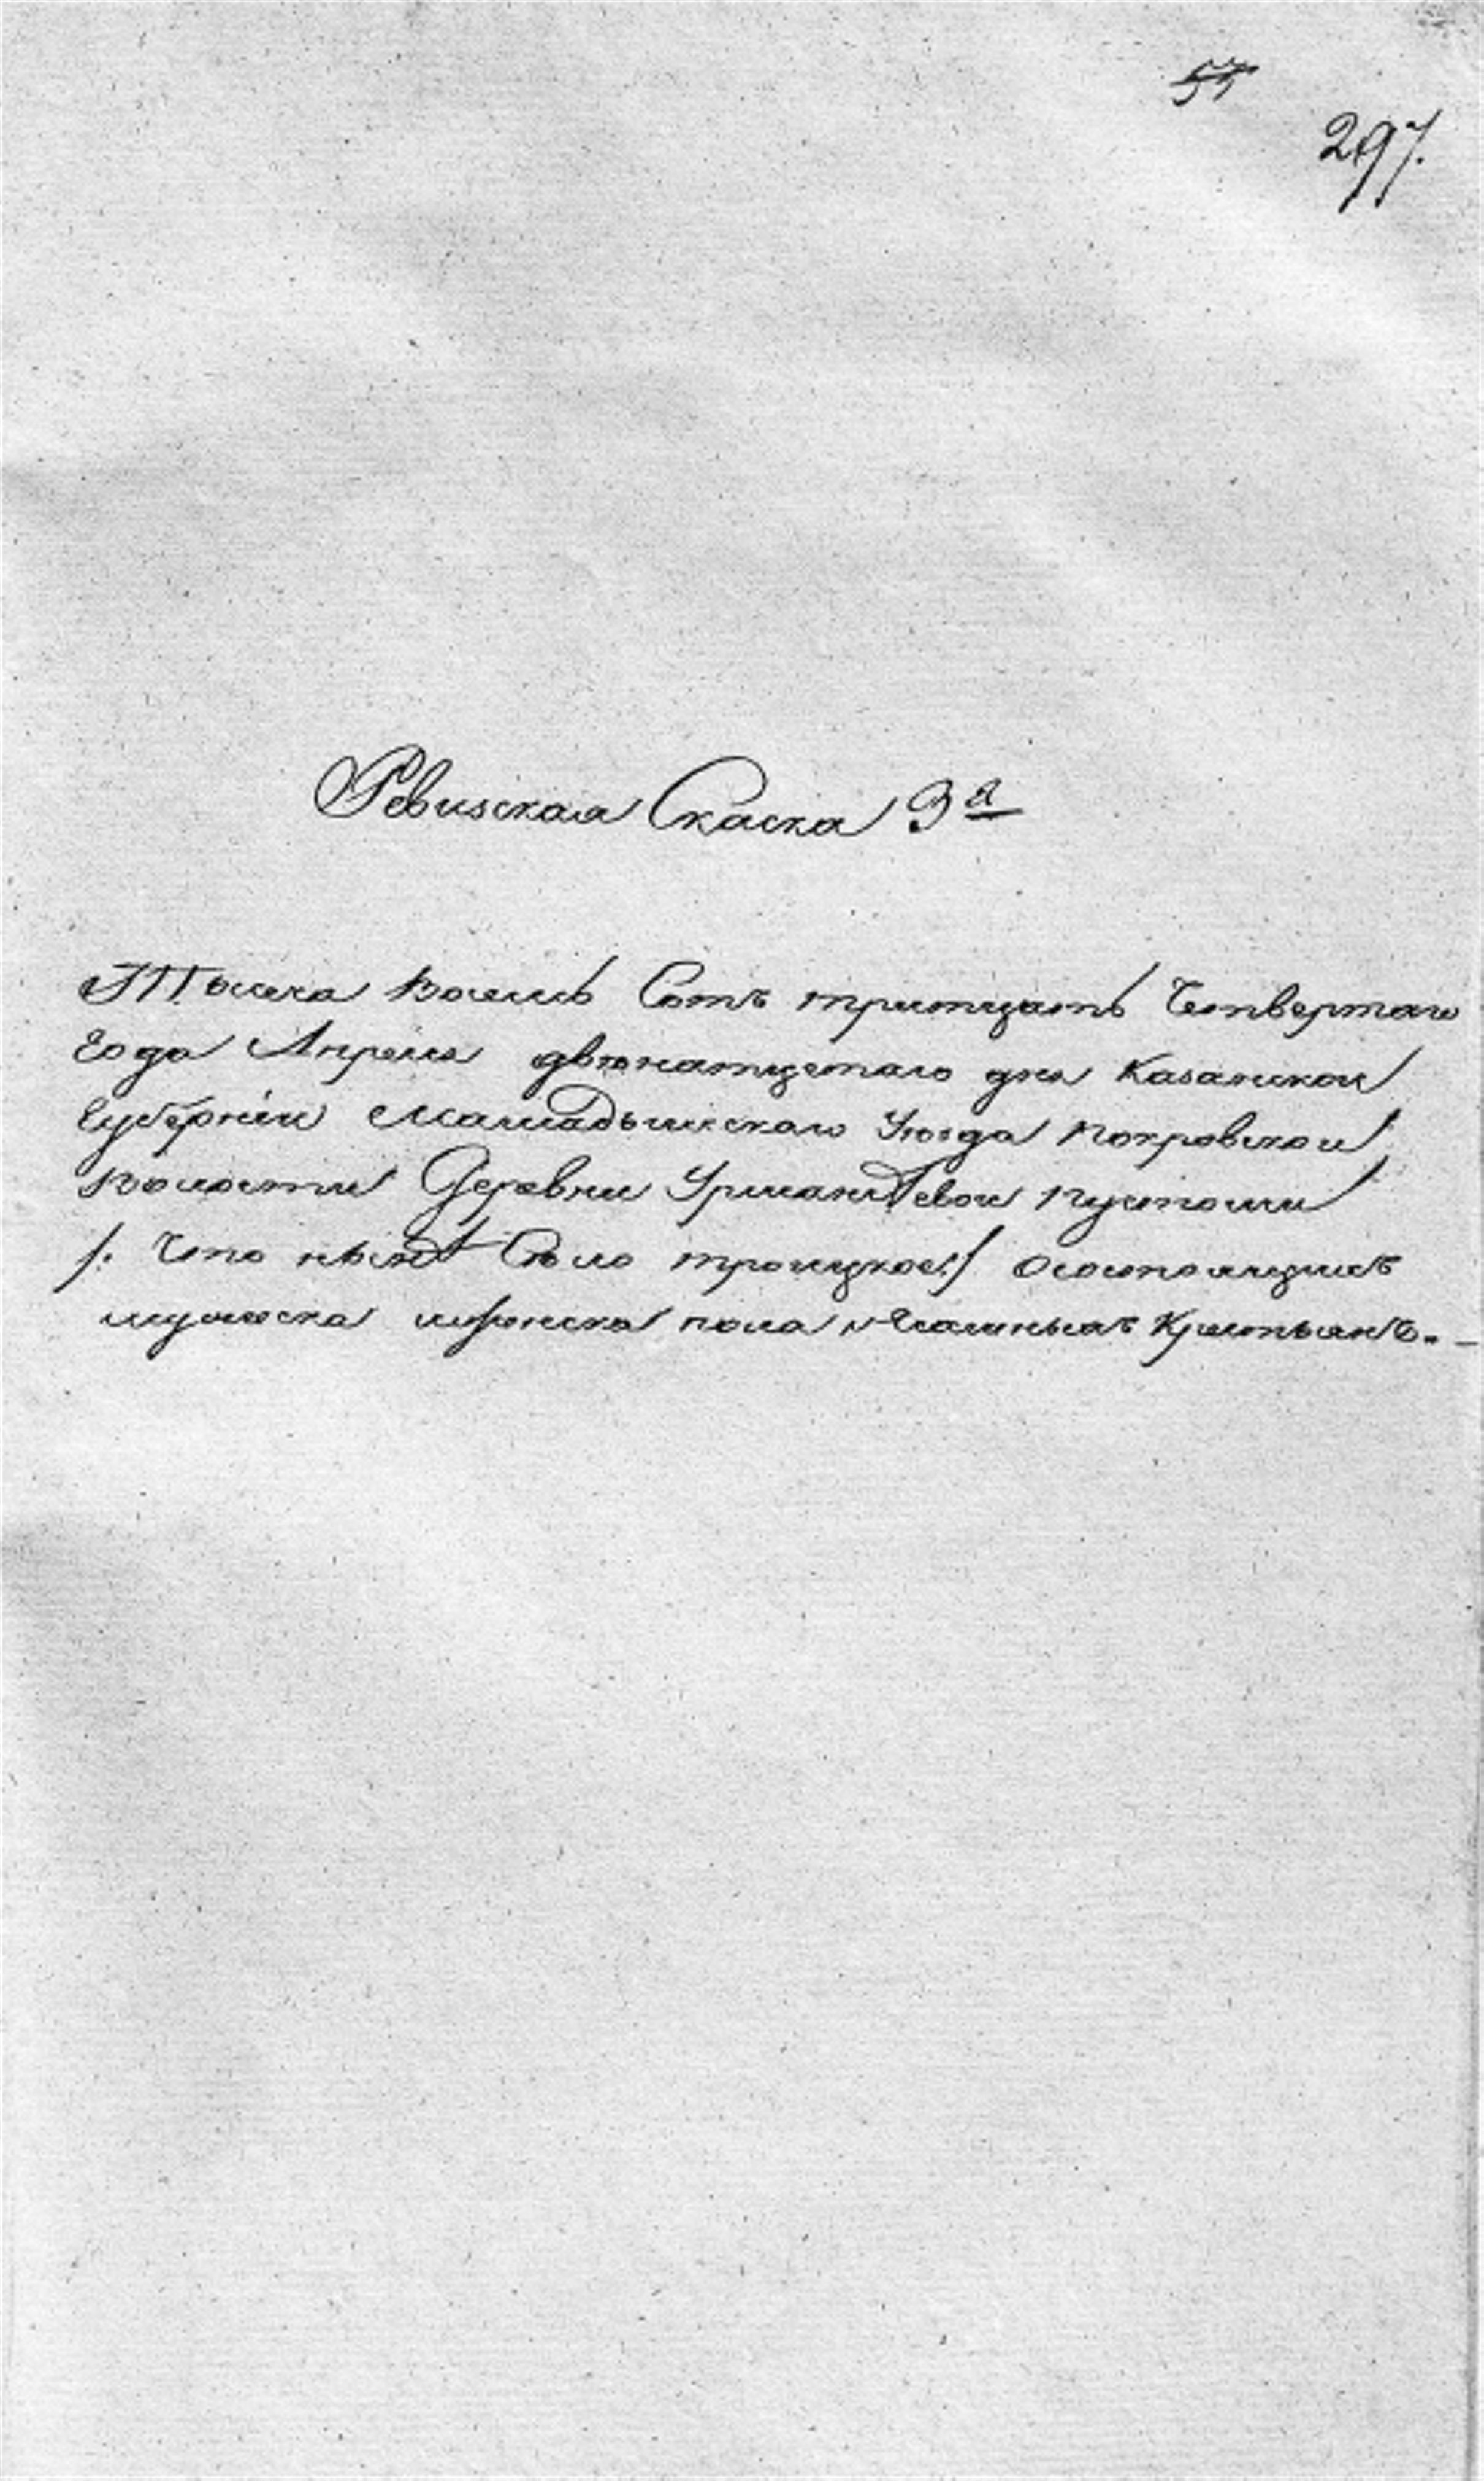 57
297.
Ревизская Скаска 3я
Тысеча восемь Сотъ тритцать Четвертаго
Года Апреля двѣнатцетаго дня Казанской
Губерніи Мамадышскаго Уѣзда покровской
волости Деревни пустоши
/: Что нынѣ Село троицкое:/ осостоящихъ
мужеска иженска пола Крестьянъ.